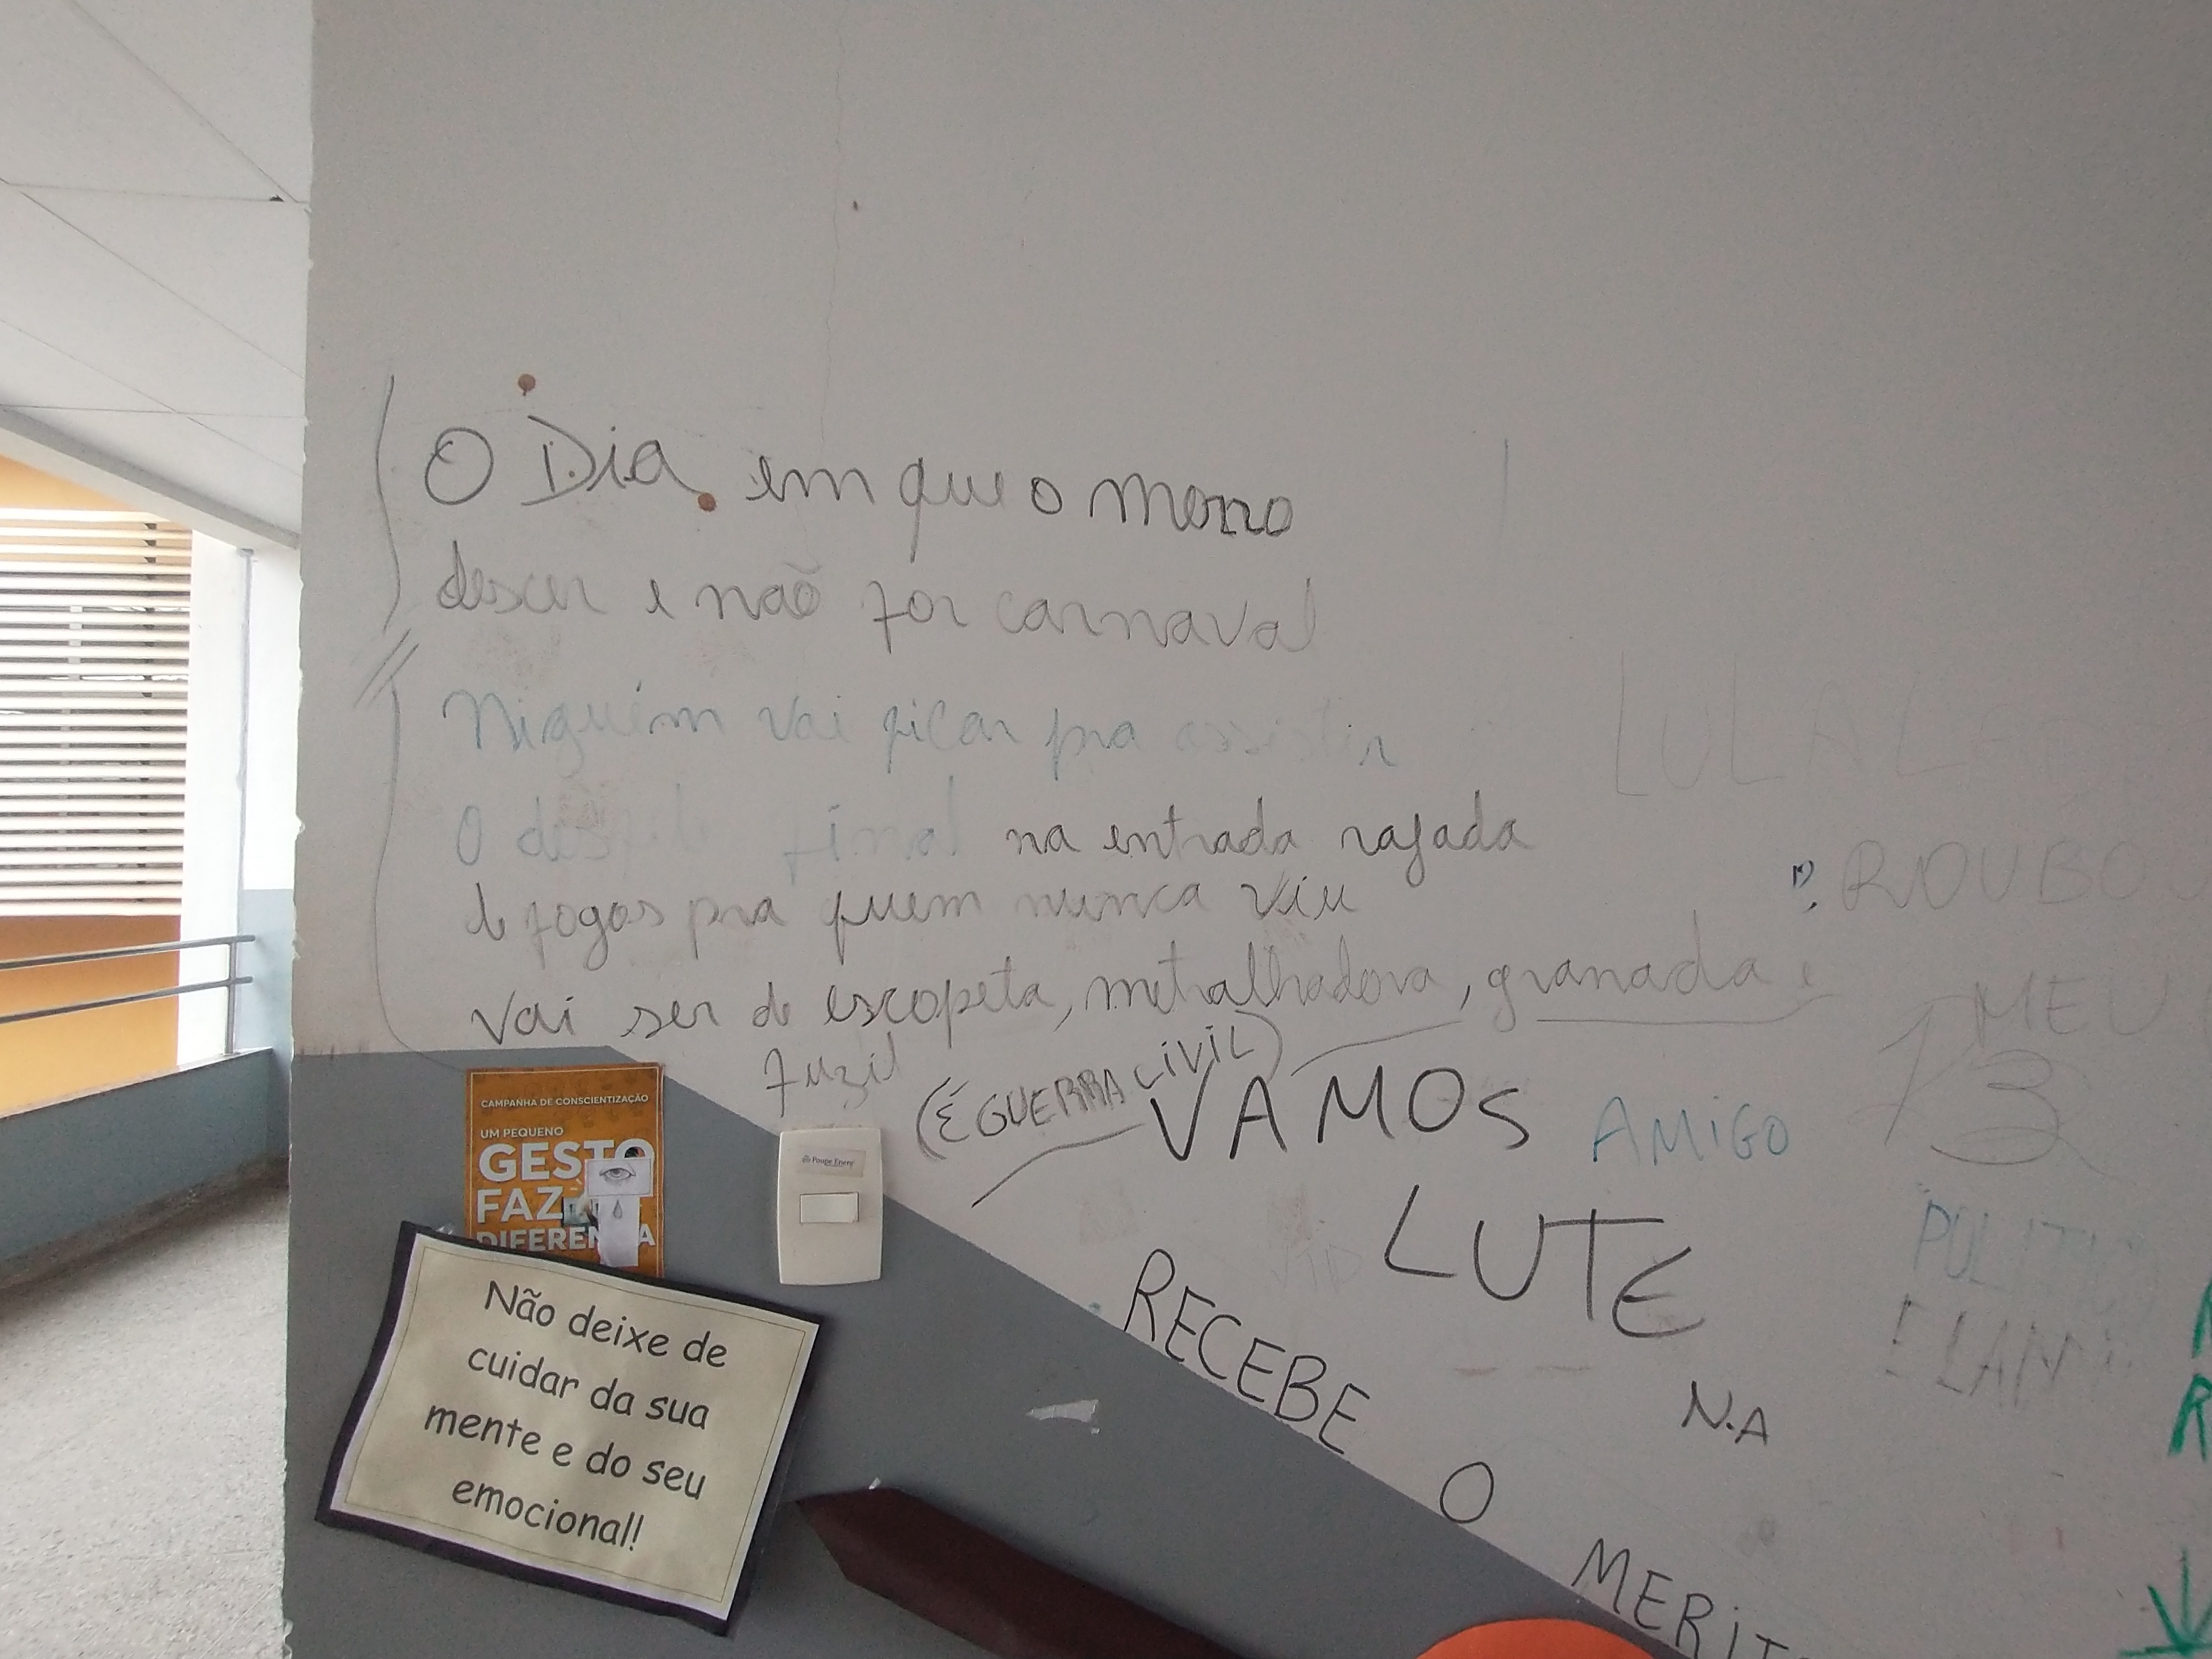 O Dia em que o morro
descer e não for carnaval
Niguém vai ficar pra assistir
O desfile final na entrada rajada
de fogos pra quem nunca viu
vai ser de escopeta, metralhadora, granada e
fuzil
(É GUERRA CIVIL)
VAMOS AMIGO
LUTE
N.A
RECEBE
O
LULA
ROUBOU
MEU
13
CAMPANHA DE CONSCIENTIZAÇÃO
UM PEQUENO
GESTO
FAZ
Não deixe de
cuidar da sua
mente e do seu
emocional!